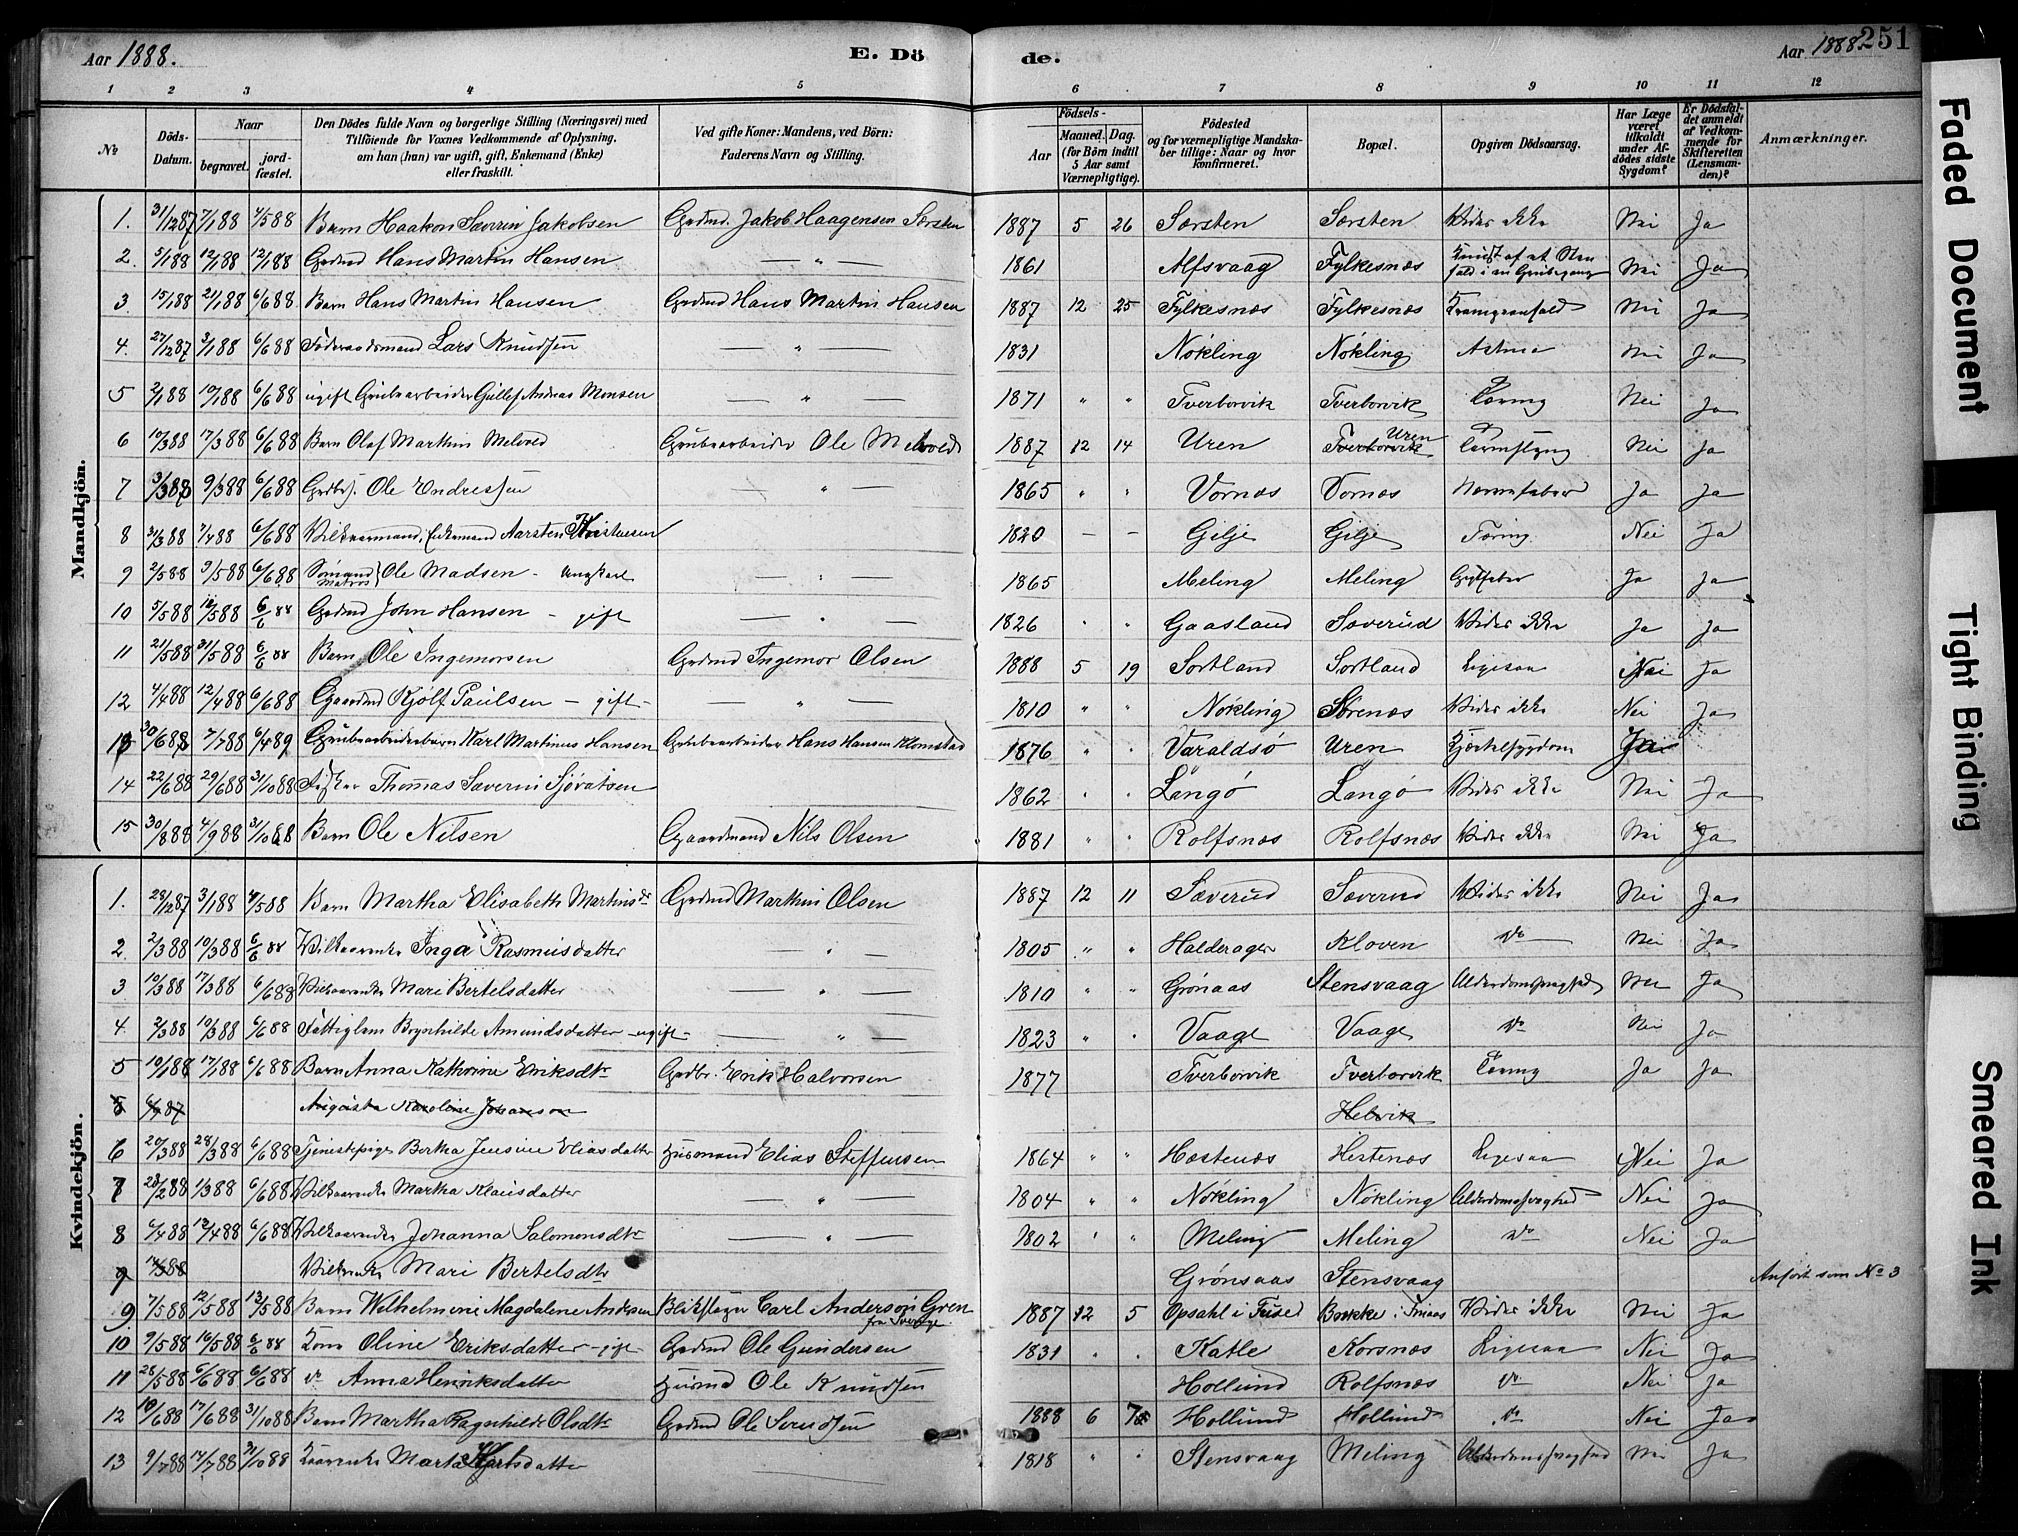 Aar 1888. E. Dö de. Aar 1888. 251
1 2 3 4 5 6 7 8 9 10 11 12
№ Döds-Datum. Naar begravet. jord-fæstet. Den Dödes fulde Navn og borgerlige Stilling (Næringsvei) med Tilföiende for Voxnes Vedkommende af Oplysning. om han (hun) var ugift, gift, Enkemand (Enke) eller fraskilt. Ved gifte Koner: Mandens, ved Börn: Faderens Navn og Stilling. Födsels- Aar Maaned. Dag. (for Börn indtil 5 Aar samt Værnepligtige). Födested og for værnepligtige Mandskaber tillige: Naar og hvor konfirmeret. Bopæl. Opgiven Dödsaarsag. Har Læge været tilkaldt under Afdödes sidste Sygdom? Er Dödsfaldet anmeldt af Vedkommende for Skifteretten (Lensmanden)? Anmærkninger.
Mandkjön.
1. 31/12 87 7/1 88 4/5 88 Barn Haakon Severin Jakobsen Grdmd. Jakob Haagensen Sørsten 1887 5 26 Sørsten Sørsten Vides ikke Nei Ja
2. 5/1 88 12/1 88 12/1 88 Grdmd Hans Martin Hansen — " — 1861 Alfsvaag Fylkesnæs Nei Ja
3 15/1 88 21/1 88 6/6 88 Barn Hans Martin Hansen Grdmd Hans Martin Hansen 1887 12 25 Fylkesnæs Fylkesnæs Krampeanfald Nei Ja
4. 27/12 87 3/1 88 6/6 88 Föderaadsmand Lars Knudsen — " — 1831 Nökling Nökling Astma Nei Ja
5 2/1 88 10/1 88 6/6 88 ugift Grubearbeider Gullef Andreas Monsen — " — 1871 " " Tverborvik Tverborvik Tæring Nei Ja
6 10/3 88 17/3 88 6/6 88 Barn Olaf Martin Melvold Grubearbeider Ole Melvold 1887 12 14 Uren Uren Nei Ja
7 3/3 88 9/3 88 6/6 88 Grdbr. Ole Endresen — " — 1865 " " Vornæs Vornæs Nervefeber Ja Ja
8 31/3 88 7/4 88 6/6 88 Vilkaarmand, Enkemand Aarsten Kristensen 1820 — — Gilje Gilje Tæring Nei Ja
9 2/5 88 9/5 88 6/6 88 Sömand Matros Ole Madsen - Ungkarl — " — 1865 Meling Meling Ja Ja
10 5/5 88 12/5 88 6/6 88 Grdmd John Hansen - gift — " — 1826 " " Gaasland Sæverud Vides ikke Ja Ja
11 21/5 88 31/5 88 6/6 88 Barn Ole Ingemorsen Grdmd Ingemor Olsen 1888 5 19 Sortland Sortland Ligesaa Nei Ja
12 4/4 88 12/4 88 6/6 88 Gaardmd Kjølf Paulsen - gift - — " — 1810 " " Nökling Sörenæs Vides ikke Nei Ja
13 30/6 88 7/7 88 6/4 89 Grubearbeiderbarn Karl Martinus Hansen Grubearbeider Hans Hansen Klomstad 1876 " " Varaldsö Uren Kjertelsygdom Ja
14 22/6 88 29/6 88 31/10 88 Fisker Thomas Severin Sjövatsen 1862 " " Langö Langö Vides ikke Nei Ja
15 30/8 88 4/9 88 31/10 88 Barn Ole Nilsen Gaardmand Nils Olsen 1881 " " Rolfsnæs Rolfsnæs Vides ikke Nei Ja
Kvindekjön.
1. 28/12 87 3/1 88 4/5 88 Barn Martha Elisabeth Martinsdr Grdmd Martin Olsen 1887 12 11 Sæverud Sæverud Vides ikke Nei Ja
2. 2/3 88 10/3 88 6/6 88 Vilkaarenke Inga Rasmusdatter — " — 1805 " " Halderager Kloven do Nei Ja
3 10/3 88 17/3 88 6/6 88 Vilkaarenke Mari Bertelsdatter — " — 1810 " " Grönaas Stensvaag Alderdomssvaghed Nei Ja
4. 2/3 88 10/3 88 6/6 88 Fattiglem Brynhilde Amundsdatter - ugift - — " — 1823 " " Vaage Vaage do Nei Ja
5 10/1 88 17/1 88 6/6 88 Barn Anna Kathrine Eriksdtr Grdbr. Erik Halvorsen 1877 Tverborvik Tverborvik Tæring Ja Ja
Augusta Karoline Johanson Helvik
6 20/3 88 28/3 88 6/6 88 Tjenestepige Bertha Jensine Eliasdatter Husmand Elias Steffensen 1864 " " Hestenæs Hestenæs Ligesaa Nei Ja
7 28/2 88 1/3 88 6/6 88 Vilkaarenke Martha Klausdatter — " — 1804 " " Nökling Nökling Alderdomssvaghed Nei Ja
8 6/4 88 13/4 88 6/6 88 Vilkaarenke Johanna Salomonsdtr — " — 1802 " " Meling Meling do Nei Ja
9 14/3 88 Vilkenke Mari Bertelsdtr Grönsaas Stensvaag Anfört som No 3
9 7/5 88 12/5 88 13/5 88 Barn Wilhelmine Magdalene Andersen Blikslager Carl Anderson Gren fra Sverige 1887 12 5 Opsahl i Fuse Vides ikke Nei Ja
10 9/5 88 16/5 88 6/6 88 Kone Oline Eriksdatter - gift - Grdmd Ole Gundersen 1831 " " Katle Korsnæs Ligesaa Nei Ja
11 28/5 88 6/6 88 6/6 88 do Anna Henriksdatter Husmd Ole Knudsen Hollund Rolfsnæs do Nei Ja
12 10/6 88 17/6 88 31/10 88 Barn Martha Ragnhilde Olsdtr Grdmd Ole Svendsen 1888 6 7 Hollund Hollund do Nei Ja
13 9/7 88 14/7 88 31/10 88 Kaarenke Marta — 1818 " " Stensvaag Meling Alderdomssvaghed Nei Ja
Faded Document
Tight Binding
Smeared Ink